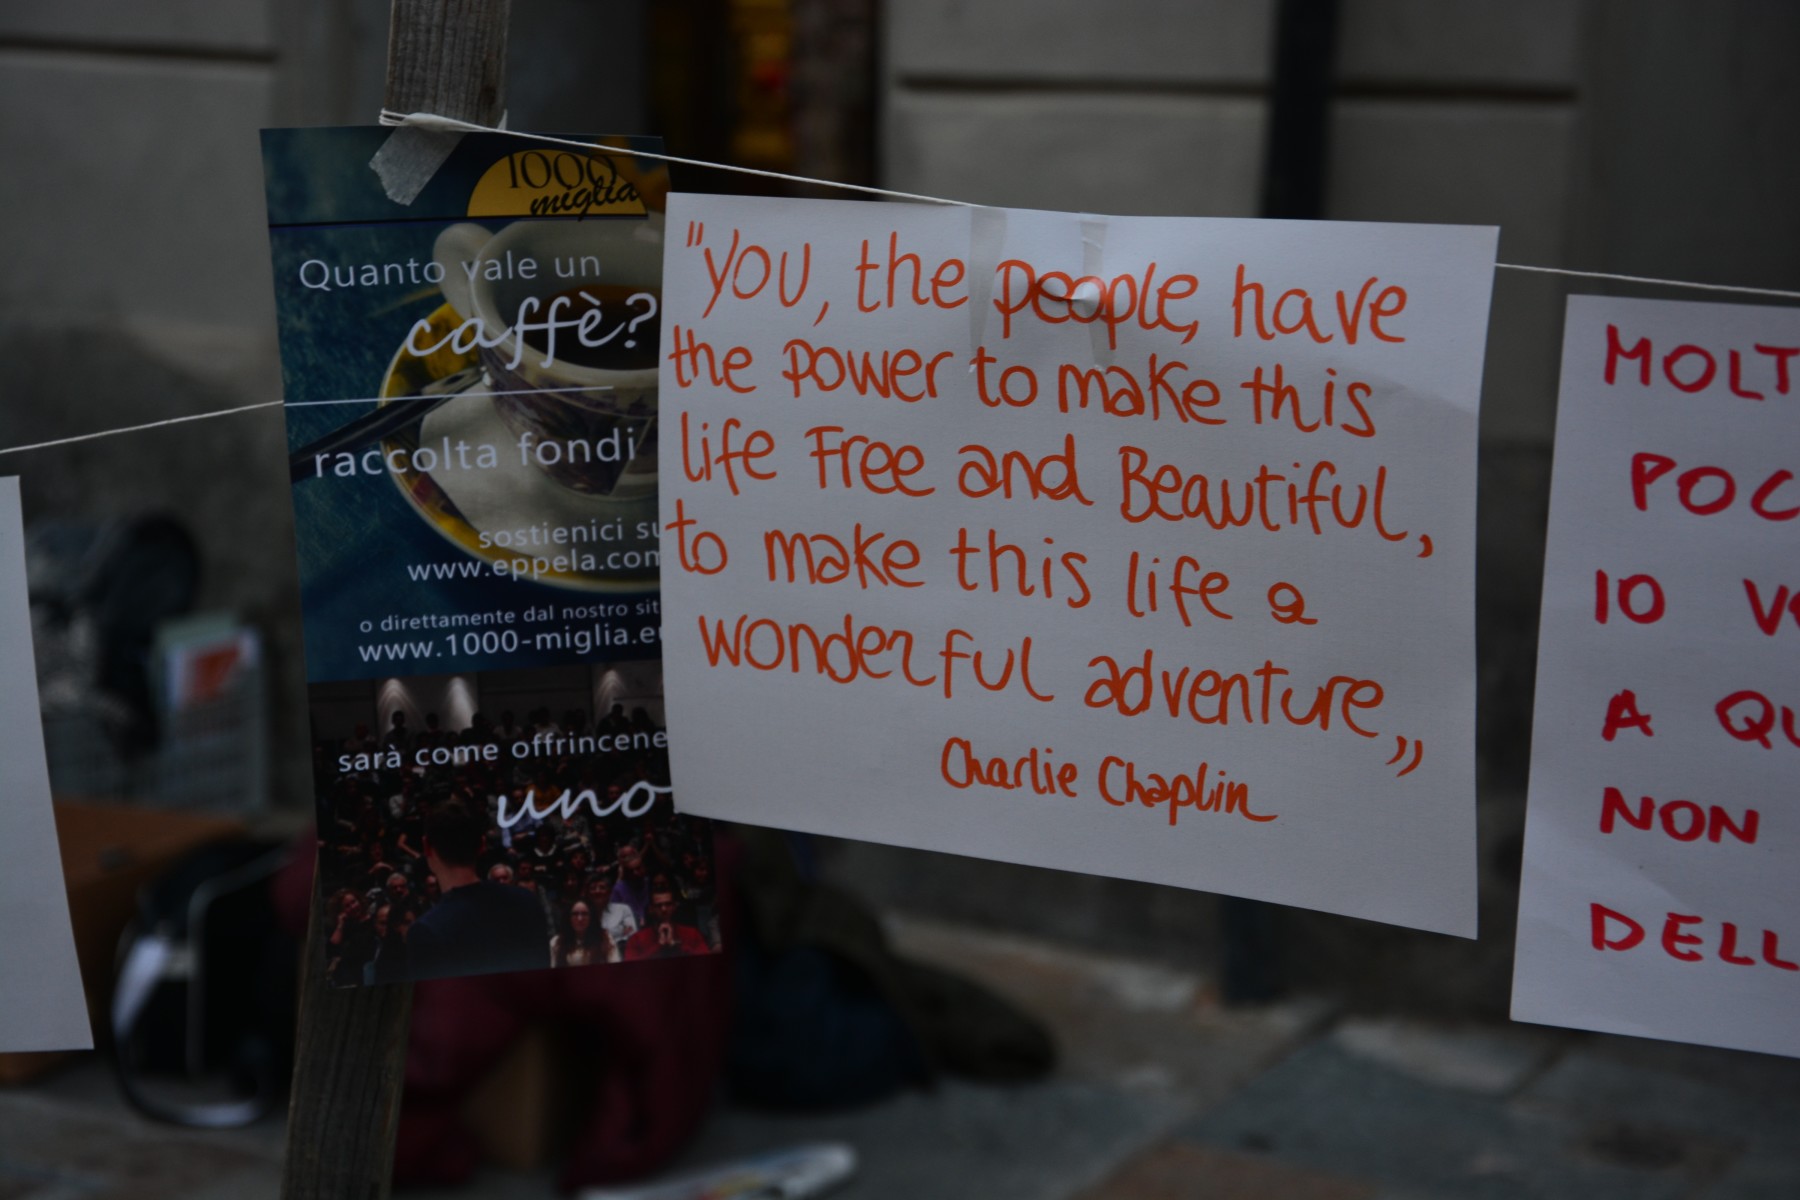 1000
miglia
Quanto vale un
caffè?
raccolta fondi
sostienici su
www.eppela.com
o direttamente dal nostro sit
www.1000-miglia.eu
sarà come offrircene
uno
"YOU, the people, have
the power to make this
life Free and Beautiful,
to make this life a
wonderful adventure„
Charlie Chaplin
MOLT
POC
IO
A QU
NON
DELL